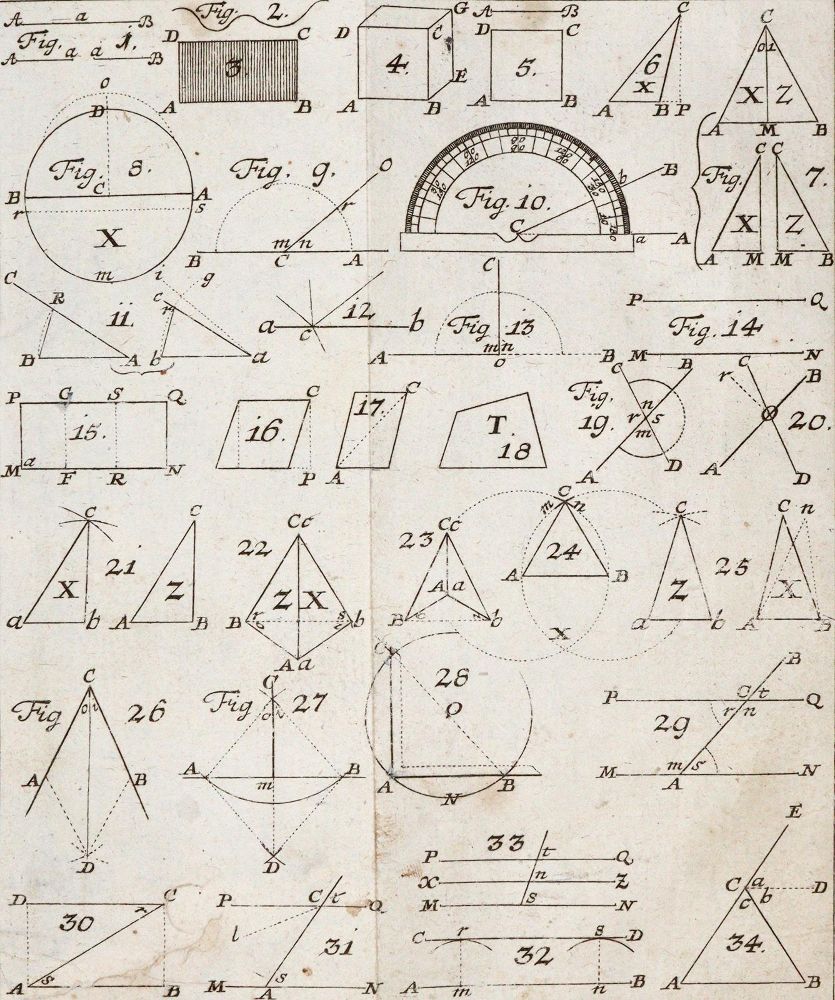 A a B
Fig. 1.
A a a B
Fig. 2.
D C
3.
A B
G
D C
4.
E
A B
A B
D C
5.
A B
C
6
x
A B P
C
o i
X Z
A M B
Fig. 7.
C C
X Z
A M M B
o
D
Fig. 8.
B C A
r s
X
m
Fig. 9.
O
r
m n
B C A
Fig. 10.
b B
C
a A
C R
11.
B A
i g
c r
b a
12
a c b
C
Fig 13
m n
A o B
P Q
Fig. 14
M N
P G S Q
15.
a
M F R N
C
16.
P
C
17.
A
T.
18
Fig. 19.
C B
n
r s
m
A D
C B
r
20.
A D
C
21
X
a b
C
Z
A B
22
Cc
Z X
B r s b
o
A a
23
Cc
A a
B b
C
m n
24
A B
X
C
Z
a b
25
C n
X
A B
Fig 26
C
o i
A B
D
Fig 27
C
o
A m B
D
28
C
O
A N B
29
B
P C t Q
r n
m s
M A N
30
D C
s
A B
31
P C t Q
l
s
M A N
33
P t Q
X n Z
M s N
32
C r s D
A m n B
34.
E
C a b D
c
A B